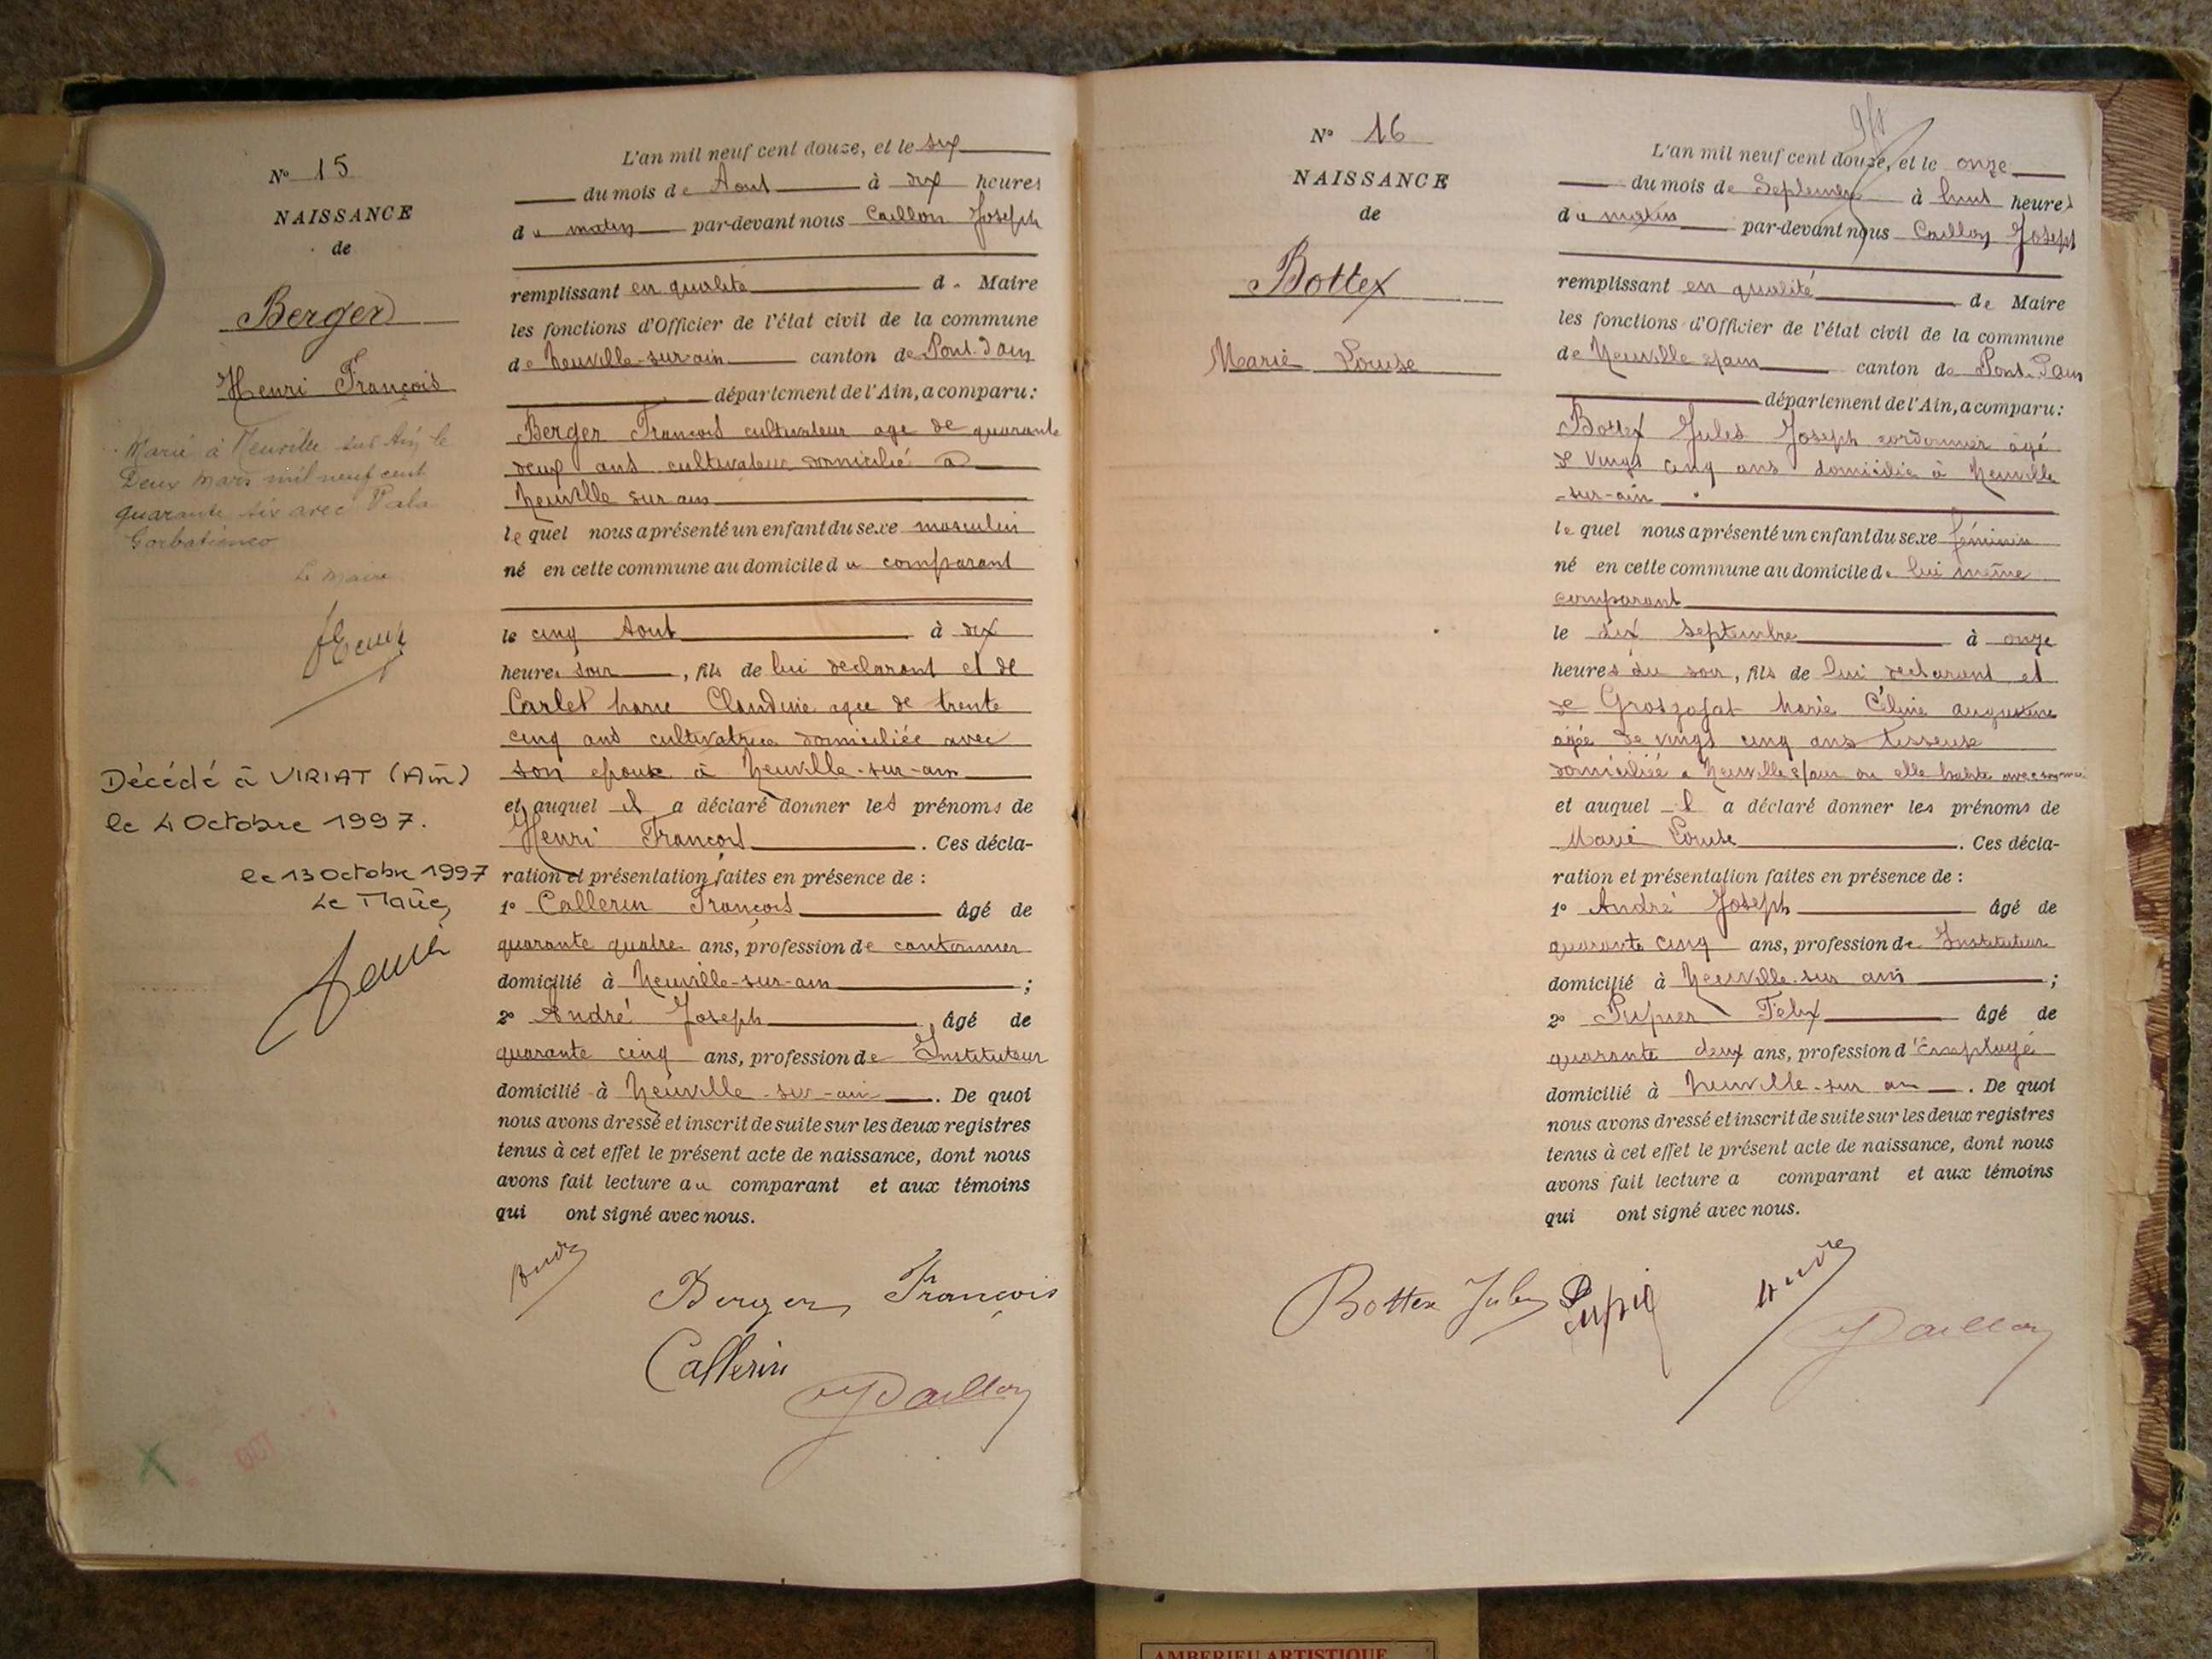 N° 15
NAISSANCE
de
Berger
Henri François
Marié à Neuville sur Ain, le
Deux mars mil neuf cent
quarante six avec
Le Maire
Décédé à VIRIAT (Ain)
le 4 Octobre 1997.
le 13 Octobre 1997
Le Maire,
L'an mil neuf cent douze, et le six
du mois de Aout à dix heures
du matin par-devant nous Caillon Joseph
remplissant en qualité de Maire
les fonctions d'Officier de l'état civil de la commune
de Neuville-sur-ain canton de Pont-d'ain
département de l'Ain, a comparu:
Berger Francois cultivateur age de quarante
deux ans cultivateur domicilié a
Neuville sur ain
lequel nous a présenté un enfant du sexe masculin
né en cette commune au domicile du comparant
le cinq Aout à dix
heures soir, fils de lui declarant et de
Carlet Marie Claudine agee de trente
cinq ans cultivatrice domiciliée avec
son epoux à Neuville-sur-ain
et auquel il a déclaré donner les prénoms de
Henri Francois. Ces décla-
ration et présentation faites en présence de :
1° Callerin François âgé de
quarante quatre ans, profession de cantonnier
domicilié à Neuville-sur-ain ;
2° André Joseph, âgé de
quarante cinq ans, profession de Instituteur
domicilié à Neuville-sur-ain. De quoi
nous avons dressé et inscrit de suite sur les deux registres
tenus à cet effet le présent acte de naissance, dont nous
avons fait lecture au comparant et aux témoins
qui ont signé avec nous.
André
Berger François
Callerin
JCaillon
OCT
N° 16
NAISSANCE
de
Bottex
Marie Louise
L'an mil neuf cent douze, et le onze
du mois de Septembre à huit heures
du matin par-devant nous Caillon Joseph
remplissant en qualité de Maire
les fonctions d'Officier de l'état civil de la commune
de Neuville s/ain canton de Pont-d'ain
département de l'Ain, a comparu:
Bottex Jules Joseph cordonnier âgé
de vingt cinq ans domicilié à Neuville
-sur-ain
lequel nous a présenté un enfant du sexe féminin
né en cette commune au domicile de lui même
comparant
le dix Septembre à onze
heures du soir, fils de lui declarant et
de Grosjafat Marie Céline augustine
agée de vingt cinq ans tisseuse
domiciliée a Neuville s/ain ou elle habite avec son mari
et auquel il a déclaré donner les prénoms de
Marie Louise. Ces décla-
ration et présentation faites en présence de :
1° André Joseph âgé de
quarante cinq ans, profession de Instituteur
domicilié à Neuville-sur ain ;
2° Pupier Felix âgé de
quarante deux ans, profession d'Employé
domicilié à Neuville-sur ain. De quoi
nous avons dressé et inscrit de suite sur les deux registres
tenus à cet effet le présent acte de naissance, dont nous
avons fait lecture a comparant et aux témoins
qui ont signé avec nous.
Bottex Jules Pupier André
JCaillon
AMBERIEU ARTISTIQUE